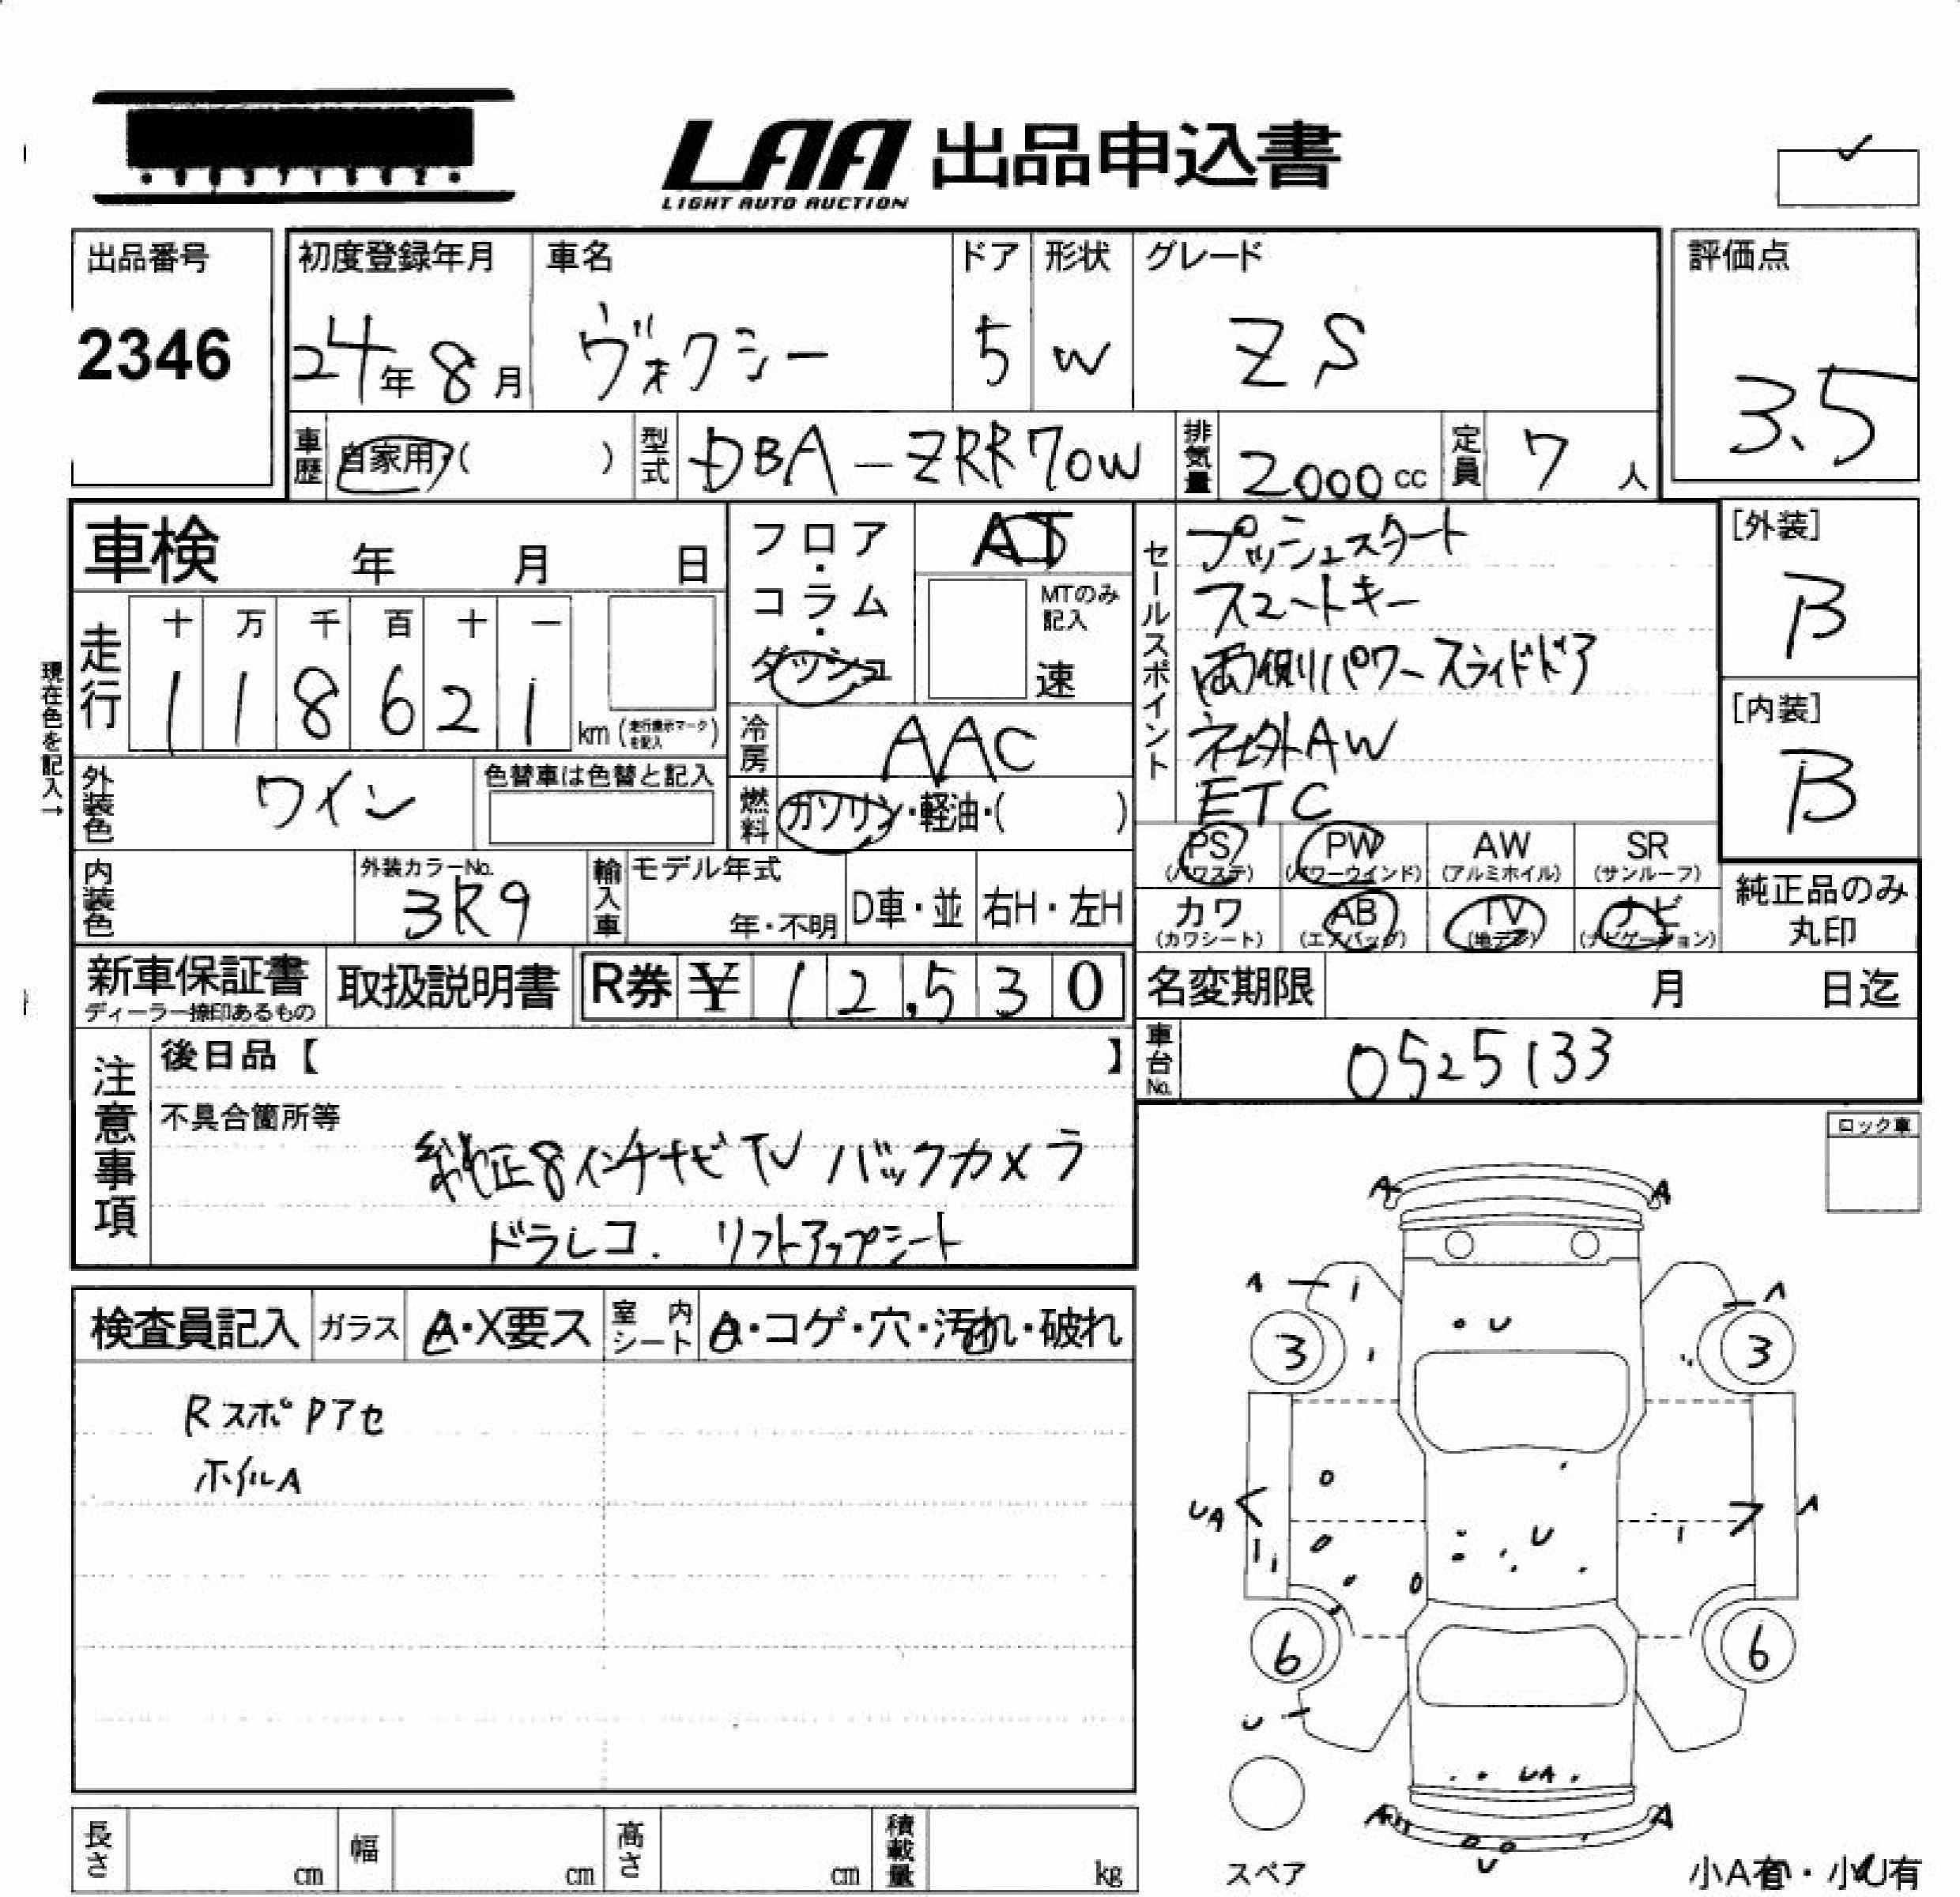 LAA 出品申込書
LIGHT AUTO AUCTION
出品番号
2346
初度登録年月
24年8月
車名
ヴォクシー
ドア
5
形状
W
グレード
ZS
評価点
3.5
車歴
自家用・( )
型式
DBA-ZRR70W
排気量
2000cc
定員
7人
車検 年 月 日
走行
十 万 千 百 十 一
1 1 8 6 2 1 km (走行表示マークを記入)
現在色を記入→
外装色
ワイン
色替車は色替と記入
内装色
外装カラーNo.
3R9
輸入車
モデル年式
年・不明
D車・並
右H・左H
フロア・コラム・ダッシュ
AT
MTのみ記入
速
冷房
AAC
燃料
ガソリン・軽油・( )
セールスポイント
プッシュスタート
スマートキー
両側パワースライドドア
社外AW
ETC
PS (パワステ)
PW (パワーウインド)
AW (アルミホイル)
SR (サンルーフ)
カワ (カワシート)
AB (エアバッグ)
TV (地デジ)
ナビ (ナビゲーション)
純正品のみ丸印
[外装]
B
[内装]
B
新車保証書
ディーラー捺印あるもの
取扱説明書
R券 ¥ 12,530
名変期限 月 日迄
車台No.
0525133
注意事項
後日品【 】
不具合箇所等
純正8インチナビTV バックカメラ
ドラレコ. リフトアップシート
ロック車
検査員記入
ガラス
A・X要ス
室内シート
・コゲ・穴・汚れ・破れ
RスポPアセ
ホイルA
A A
A A
U
3 3
UA A
U
6 6
U
UA
A A
U
スペア
小A有・小U有
長さ cm
幅 cm
高さ cm
積載量 kg